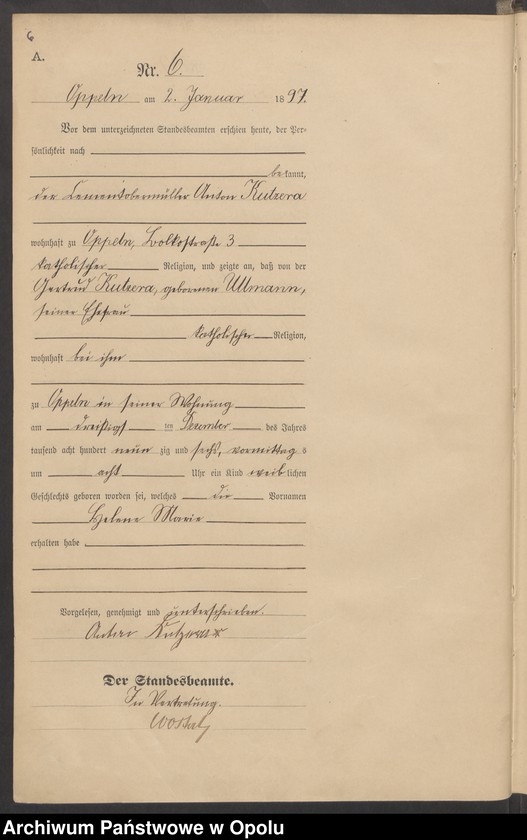 6
A.
Nr. 6.
Oppeln am 2. Januar 1897.
Vor dem unterzeichneten Standesbeamten erschien heute, der Per-
sönlichkeit nach
be kannt,
der Cementobermüller Anton Kutzera
wohnhaft zu Oppeln, Bolkostraße 3
katholischer Religion, und zeigte an, daß von der
Gertrud Kutzera, geborenen Ullmann,
seiner Ehefrau
katholischer Religion,
wohnhaft bei ihm
zu Oppeln in seiner Wohnung
am dreißigsten Dezember des Jahres
tausend acht hundert neun zig und sechs, vormittag s
um acht Uhr ein Kind weib lichen
Geschlechts geboren worden sei, welches die Vornamen
Helene Marie
erhalten habe
Vorgelesen, genehmigt und unterschrieben.
Anton Kutzera
Der Standesbeamte.
In Vertretung.
Archiwum Państwowe w Opolu